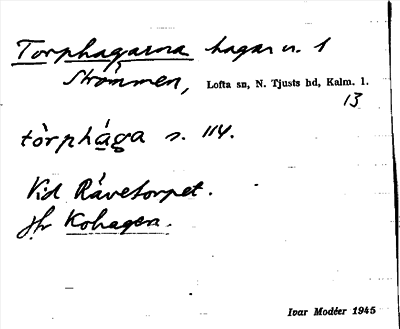 Torphagarna hagar n. 1
Strömmen, Lofta sn, N. Tjusts hd, Kalm. l.
13
tòrphága s. 114.
Vid Rävetorpet.
Jfr Kohagen.
Ivar Modéer 1945